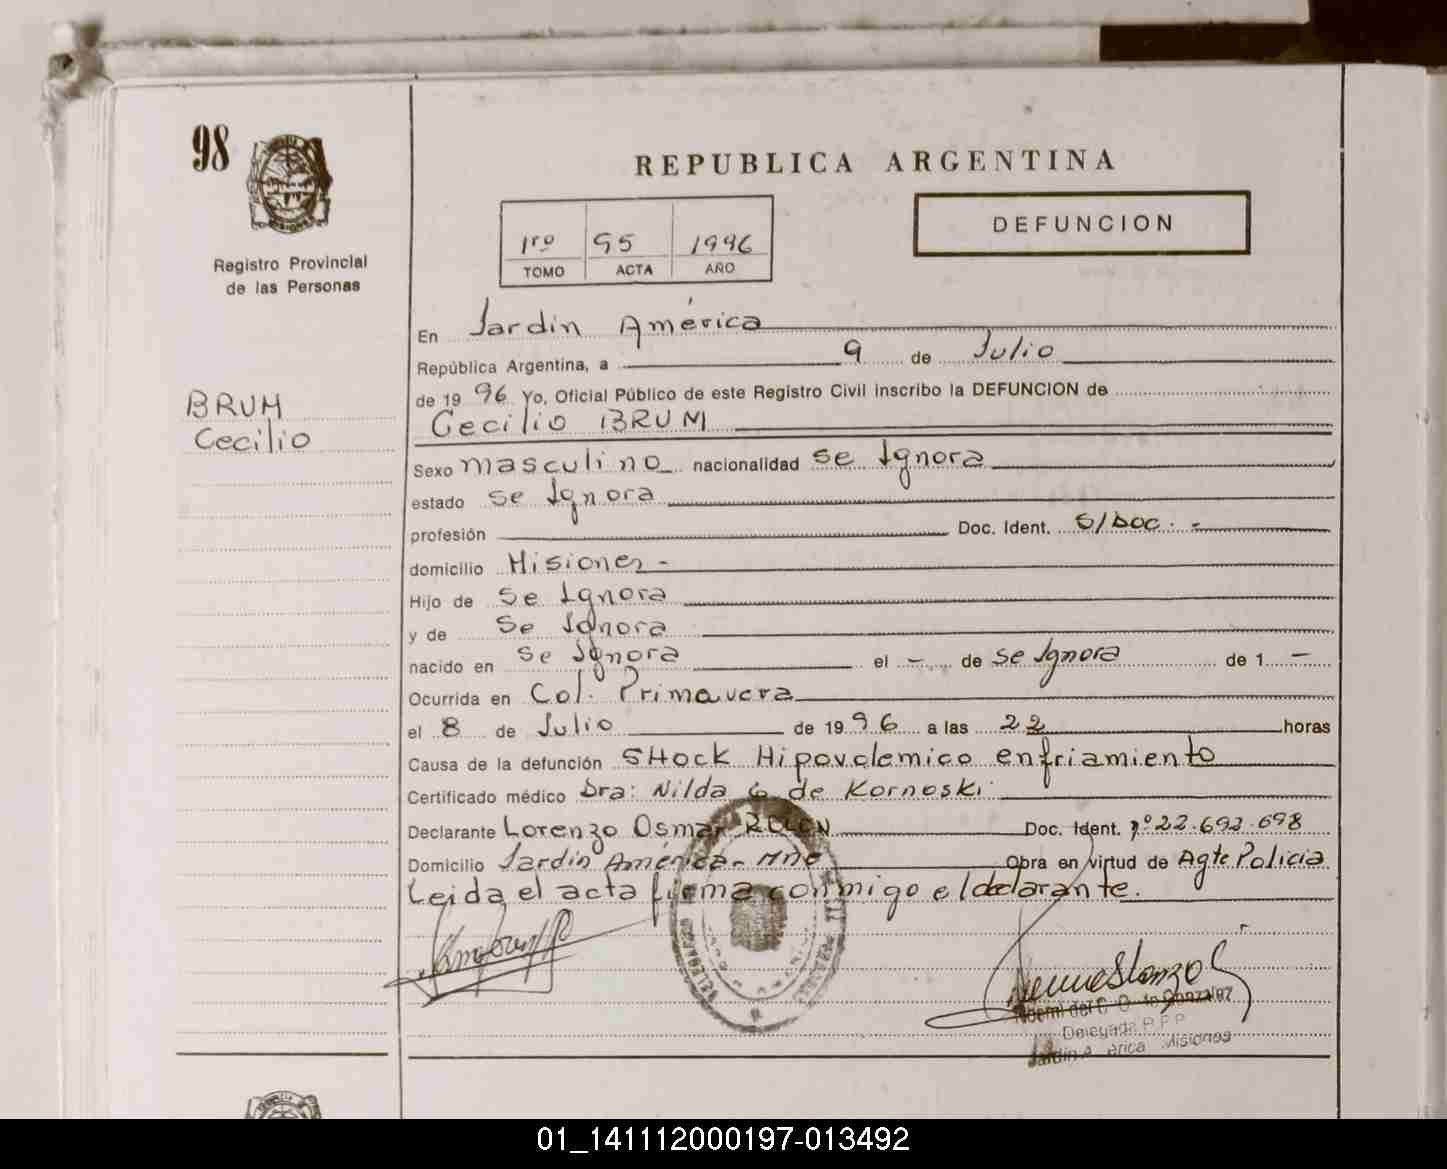 98
REPUBLICA ARGENTINA
1ro 95 1996
TOMO ACTA AÑO
DEFUNCION
Registro Provincial
de las Personas
BRUM
Cecilio
En Jardín América
República Argentina, a 9 de Julio
de 19 96 Yo, Oficial Público de este Registro Civil inscribo la DEFUNCION de
Cecilio BRUM
Sexo masculino nacionalidad se Ignora
estado se Ignora
profesión Doc. Ident. S/Doc. -
domicilio Misiones -
Hijo de se Ignora
y de Se Ignora
nacido en se Ignora el - de se Ignora de 1 -
Ocurrida en Col. Primavera
el 8 de Julio de 19 96 a las 22 horas
Causa de la defunción SHock Hipovolemico enfriamiento
Certificado médico Dra: Nilda G de Kornoski
Declarante Lorenzo Osmar ROLON Doc. Ident. nº 22.692.698
Domicilio Jardín América - Mnes Obra en virtud de Agte Policia
Leida el acta firma conmigo el declarante.
Noemi del C. O. de Gonzalez
Delegada R.P.P.
Jardín América Misiones
01_141112000197-013492